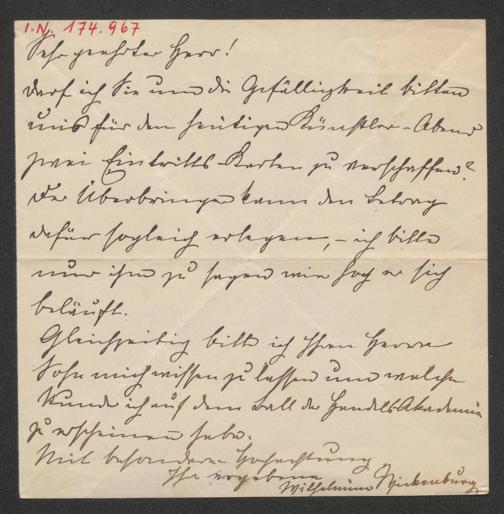 I.N. 174.967
Sehr geehrter Herr!
Darf ich Sie um die Gefälligkeit bitten
uns für den heutigen Künstler-Abend
zwei Eintritts-Karten zu verschaffen?
Der Überbringer kann den Betrag
dafür sogleich erlegen, – ich bitte
nur ihm zu sagen wie hoch er sich
beläuft.
Gleichzeitig bitte ich Ihren Herrn
Sohn mich wissen zu lassen um welche
Stunde ich auf dem Ball der Handels Akademie
zu erscheinen habe.
Mit besonderer Hochachtung
Ihre ergebene
Wilhelmine Wickenburg